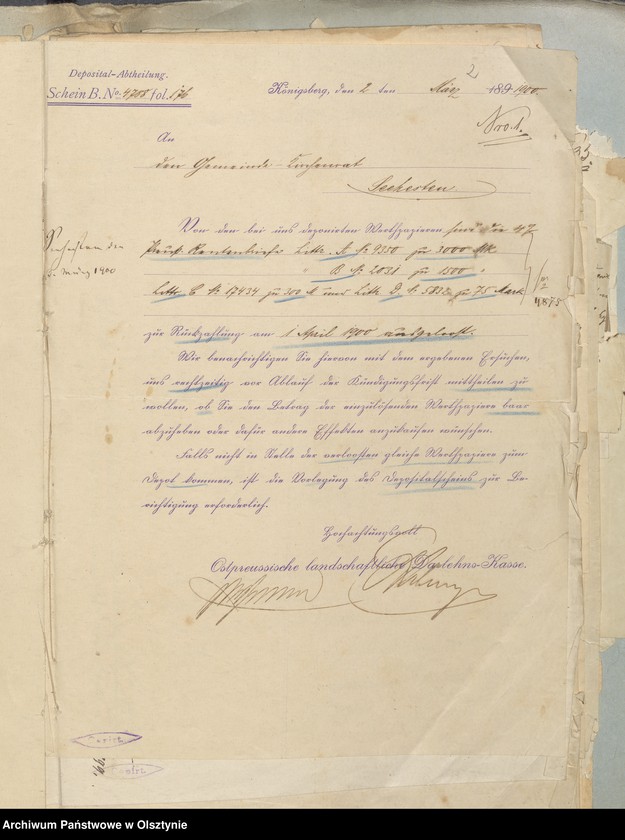 Deposital-Abtheilung.
Schein B. No. 4708 fol. 176
Königsberg, den 2 ten März 1900
2
Nro. 1.
An
den Gemeinde-Kirchenrat
Seehesten
Von den bei uns deponirten Werthpapieren sind die
Preuß. Rentenbriefe Littr. A № 9350 zu 3000 Mk
B № 2031 zu 1500 "
Littr C № 17434 zu 300 M und Littr. D. № zu 75 Mark
4875
Seehesten den
März 1900
zur Rückzahlung am 1 April 1900 ausgeloost.
Wir benachrichtigen Sie hiervon mit dem ergebenen Ersuchen,
uns rechtzeitig vor Ablauf der Kündigungsfrist mittheilen zu
wollen, ob Sie den Betrag der einzulösenden Werthpapiere baar
abzuheben oder dafür andere Effekten anzukaufen wünschen.
Falls nicht in Stelle der verloosten gleiche Werthpapiere zum
Depot kommen, ist die Vorlegung des Depositalscheins zur Be-
richtigung erforderlich.
Hochachtungsvoll
Ostpreussische landschaftliche Darlehns-Kasse.
Archiwum Państwowe w Olsztynie